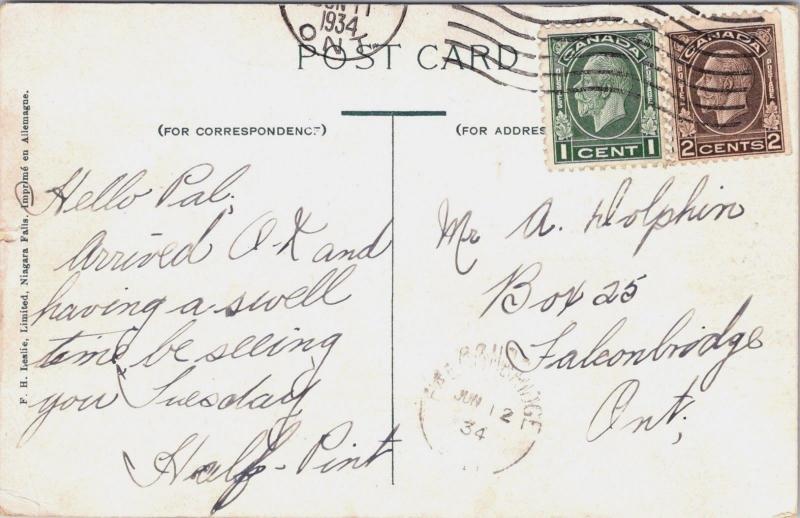 JUN 11
1934
ONT.
POST CARD
(FOR CORRESPONDENCE)
(FOR ADDRES
CANADA
POSTES
POSTAGE
1 CENT 1
CANADA
POSTES
POSTAGE
2 CENTS 2
F. H. Leslie, Limited, Niagara Falls. Imprimé en Allemagne.
Hello Pal,
Arrived O-K and
having a swell
time, be seeing
you Tuesday
Half-Pint
Mr A. Dolphin
Box 25
Falconbridge
Ont,
FALCONBRIDGE
JUN 12
34